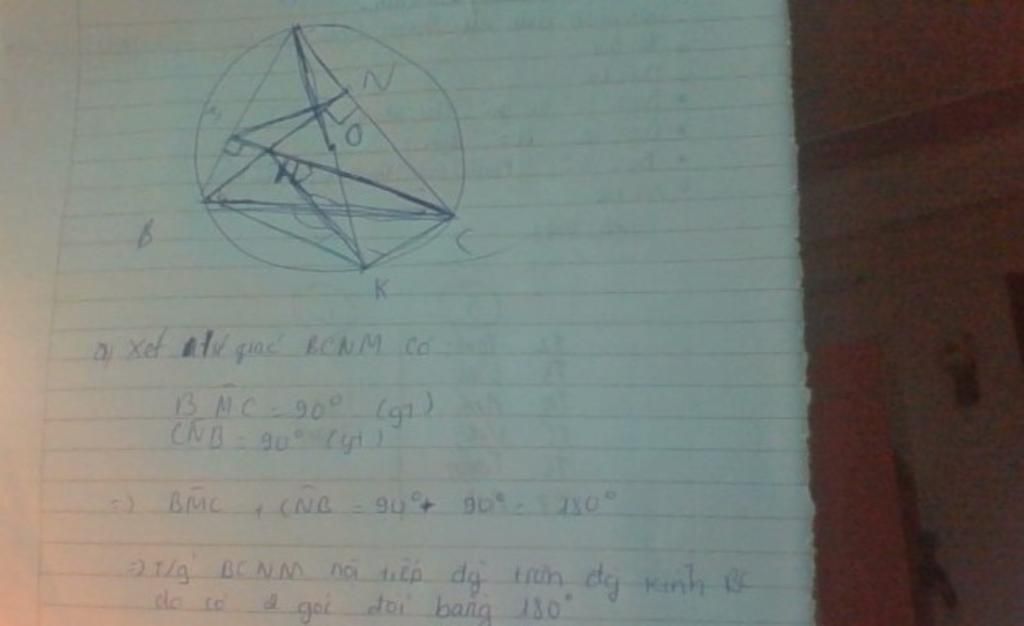 N
O
B
C
K
a) Xét tứ giác BCNM có
BMC = 90° (gt)
CNB = 90° (gt)
=> BMC + CNB = 90° + 90° = 180°
=> T/g BCNM nội tiếp đg tròn đg kính BC
do có 2 góc đối bằng 180°